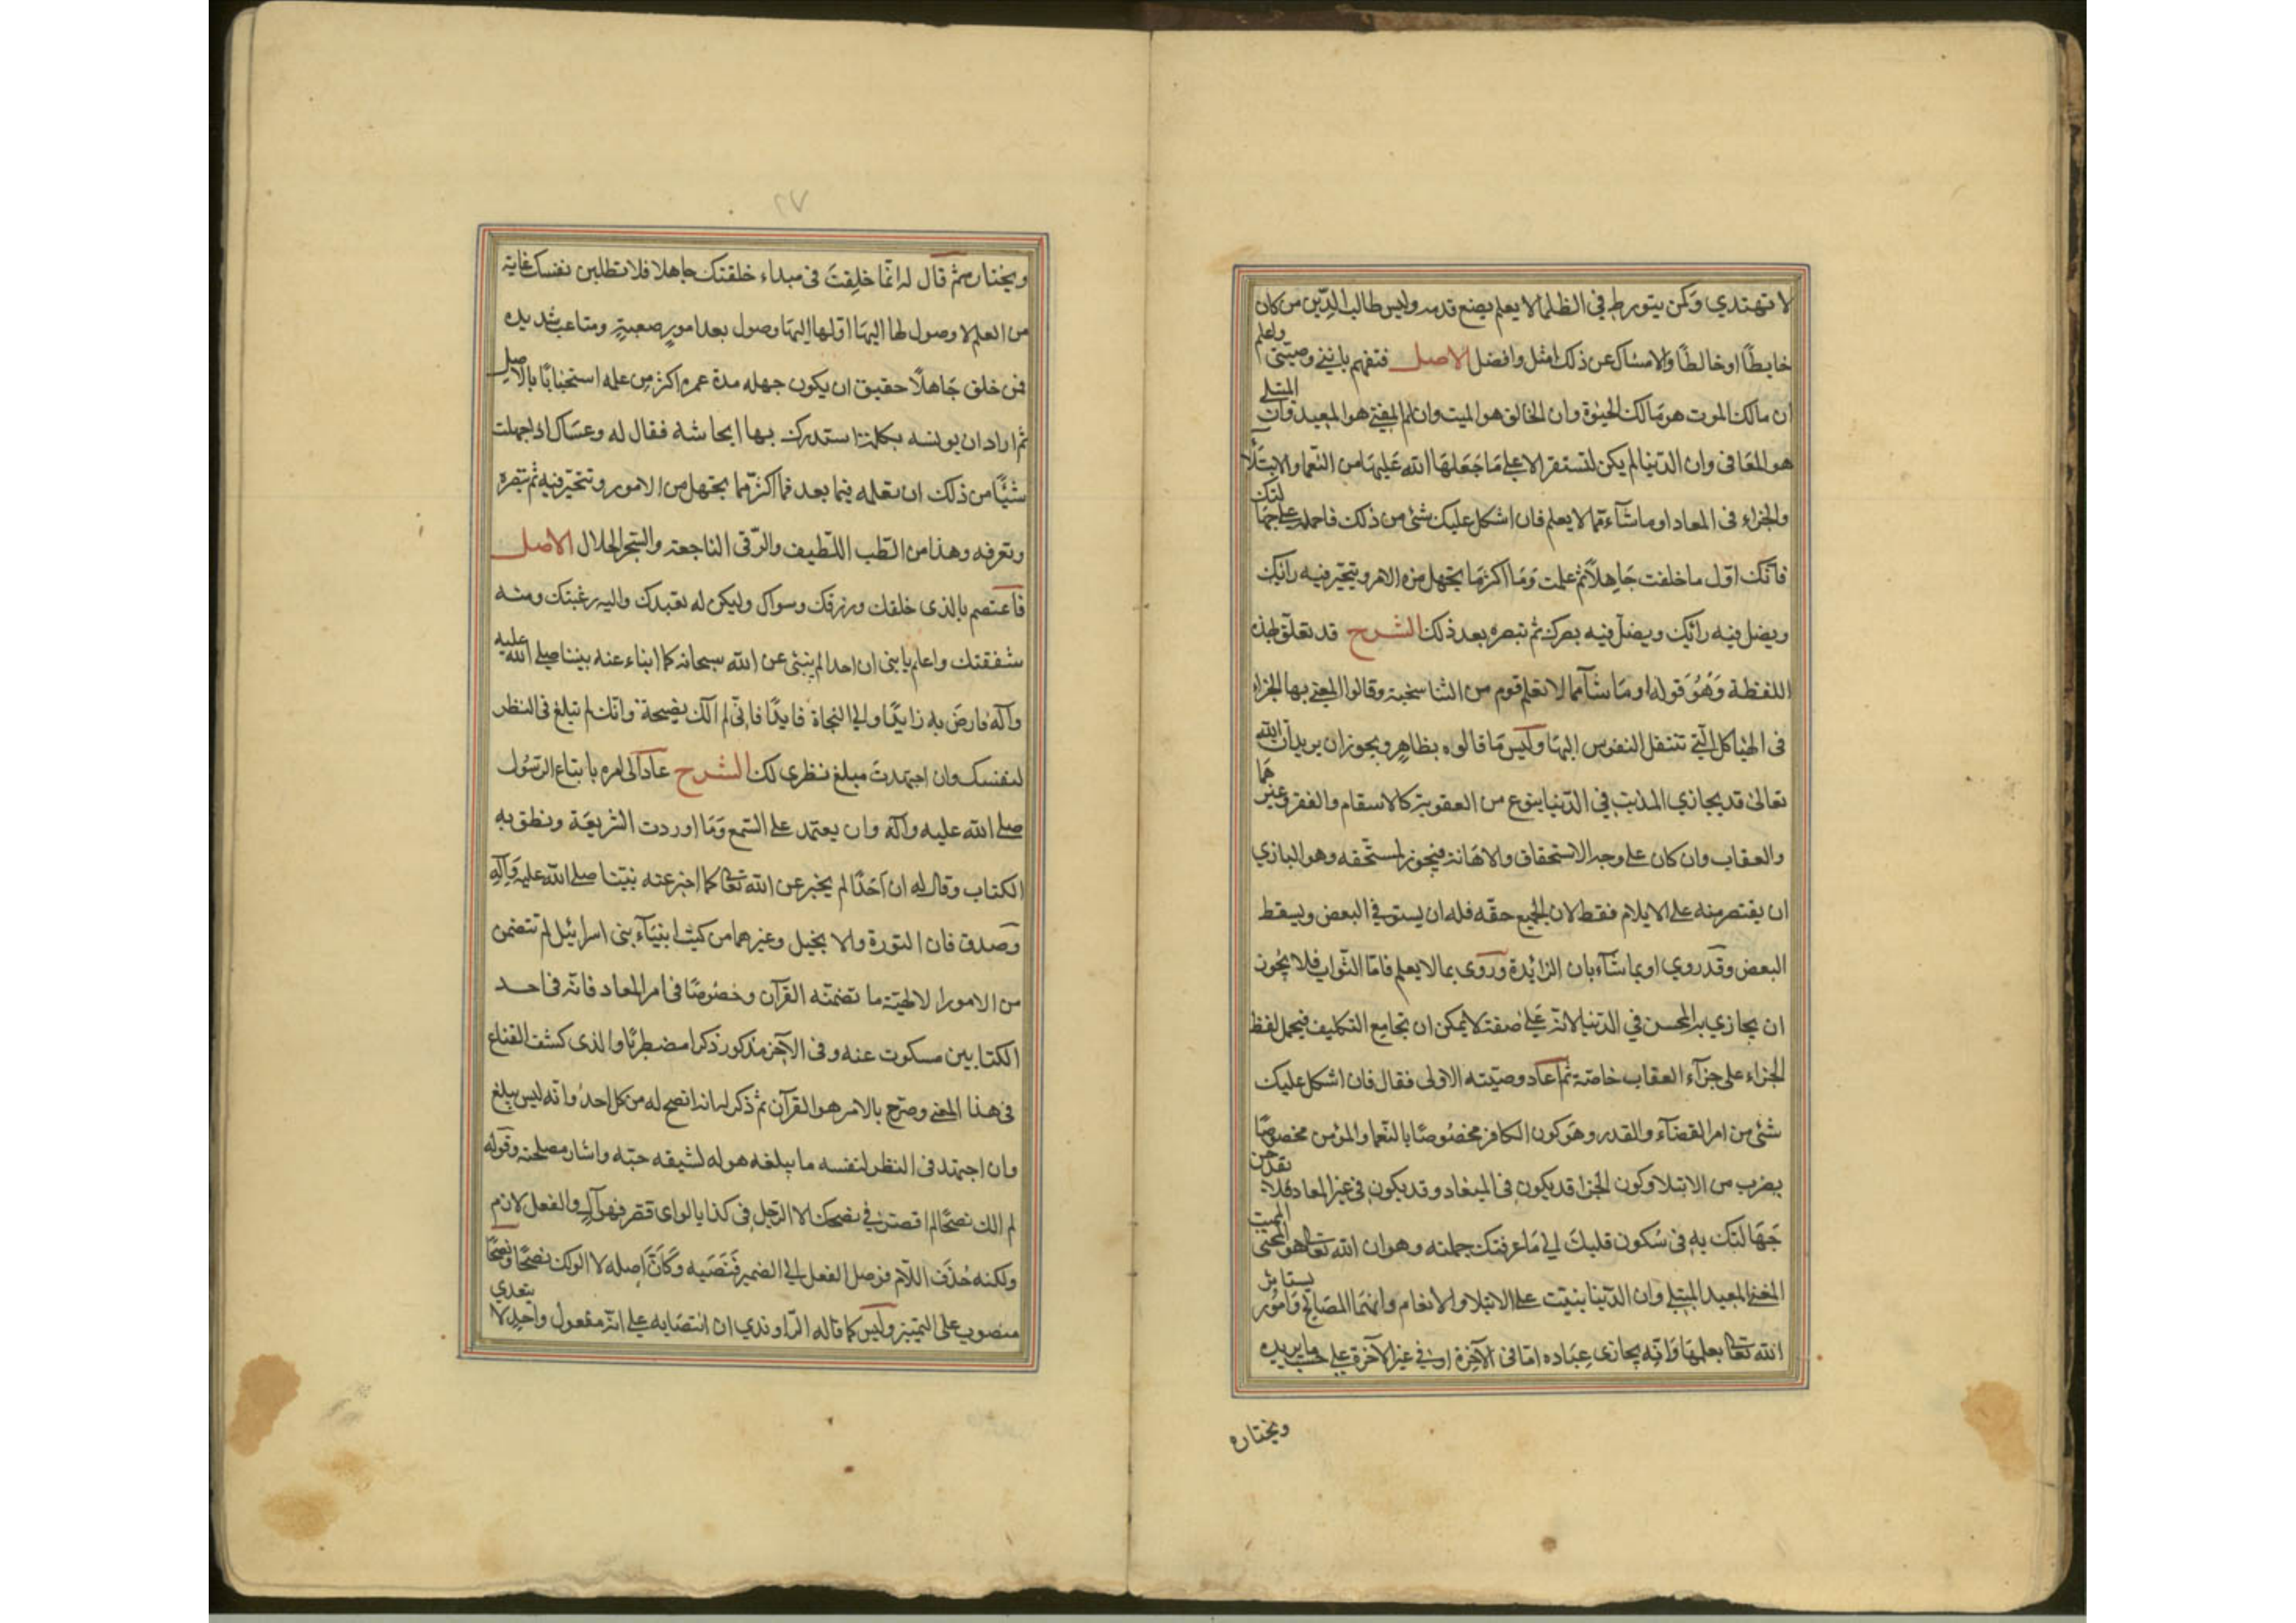 لا تهتدي وكمن يتورط في الظلما لا يعلم يضع قدمه وليس طالب الدين من كان
خابطًا او خالطًا والامساك عن ذلك امثل وافضل الاصل فتفهم يا بني وصيتي واعلم
ان مالك الموت هو مالك الحيوة وان الخالق هو المميت وان المفني هو المعيد وان المبتلي
هو المعافى وان الدنيا لم يكن لتستقر الا على ما جعلها الله عليها من النعما والابتلا
والجزاء في المعاد او ما شآء مما لا يعلم فان اشكل عليك شئ من ذلك فاحمله على جهالتك
فانك اول ما خلقت جاهلاً ثم علمت وما اكثر ما تجهل من الامر ويتحير فيه رائك
ويضل فيه رائك ويضل فيه بصرك ثم تبصره بعد ذلك الشرح قد تعلق بهذه
اللفظة وهو قوله او ما شآ مما لا تعلم قوم من التناسخية وقالوا المعني بها الجزاء
في الهياكل التي تنتقل النفوس اليها وليس ما قالوه بظاهر ويجوز ان يريد ان الله
تعالى قد يجازي المذنب في الدنيا بنوع من العقوبة كالاسقام والفقر وغيرهما
والعقاب وان كان على وجه الاستحقاق والاهانة فيجوز لمستحقه وهو الباري
ان يقتصر منه على الايلام فقط لان الجميع حقه فله ان يستوفي البعض ويسقط
البعض وقد روي او بما شآء بان الزائدة وروى بما لا يعلم فاما الثواب فلا يجوز
ان يجازي به المحسن في الدنيا لانه على صفة لا يمكن ان تجامع التكليف فيحمل لفظ
الجزاء على جزآء العقاب خاصة ثم اعاد وصيته الاولى فقال فان اشكل عليك
شئ من امر القضآء والقدر وهو كون الكافر مخصوصًا بالنعما والمؤمن مخصوصًا
بضرب من الابتلا وكون الجزا قد يكون في المعاد وقد يكون في غير المعاد فلا تقدحن
جهالتك به في سكون قلبك الى ما عرفتك جملته وهو ان الله تعالى هو المحيي المميت
المفني المعيد المبتلي وان الدنيا بنيت على الابتلا والانعام وانهما لمصالح وامور يستاثر
الله تعالى بعلمها وانه يجازى عباده اما في الآخرة او في غير الآخرة على حسب ما يريده
ويختاره
٢٧
ويختاره ثم قال له انما خلقت في مبداء خلقتك جاهلا فلا تطلبن نفسك غاية
من العلم لا وصول لها اليها او لها اليها وصول بعد امور صعبة ومتاعب شديده
فمن خلق جاهلاً حقيق ان يكون جهله مدة عمره اكثر من علمه استصحابًا بالاصل
ثم اراد ان يونسه بكلمة استدرك بها ايحاشه فقال له وعساك اذا جهلت
شيئًا من ذلك ان تعلمه فيما بعد فما اكثر ما تجهل من الامور وتتحير فيه ثم تبصره
وتعرفه وهذا من الطب اللطيف والرقى الناجعة والسحر الحلال الاصل
فاعتصم بالذى خلقك ورزقك وسواك وليكن له تعبدك واليه رغبتك ومنه
شفقتك واعلم يا بنى ان احدا لم ينبئ عن الله سبحانه كما انباء عنه نبينا صلى الله عليه
وآله فارض به زايدًا والى النجاة قايدًا فاني لم آلك نصيحة وانك لم تبلغ فى النظر
لنفسك وان اجتهدت مبلغ نظرى لك الشرح عاد الى امره باتباع الرسول
صلى الله عليه وآله وان يعتمد على السمع وما اوردت الشريعة ونطق به
الكتاب وقال له ان احدًا لم يخبر عن الله تعالى كما اخبر عنه نبينا صلى الله عليه وآله
وصدق فان التورة والانجيل وغيرهما من كتب انبيآء بنى اسرائيل لم تتضمن
من الامور الالهية ما تضمنه القرآن وخصوصًا فى امر المعاد فانه فى احد
الكتابين مسكوت عنه وفى الآخر مذكور ذكرا مضطربًا والذى كشف القناع
فى هذا المعنى وصرح بالامر هو القرآن ثم ذكر له انه انصح له من كل احد وانه ليس يبلغ
وان اجتهد فى النظر لنفسه ما يبلغه هو له لشيقه حبه واشار مصلحته وقوله
لم الك نصحًا لم اقصر في نصحك الا الرجل فى كذا يالوا اى قصر فهو آل والفعل لازم
ولكنه حذف اللام فوصل الفعل الى الضمير فنصبه وكان اصله لا الو لك نصحًا ونصحًا
منصوب على التمييز وليس كما قاله الراوندي ان انتصابه على انه مفعول واحد لا يتعدي